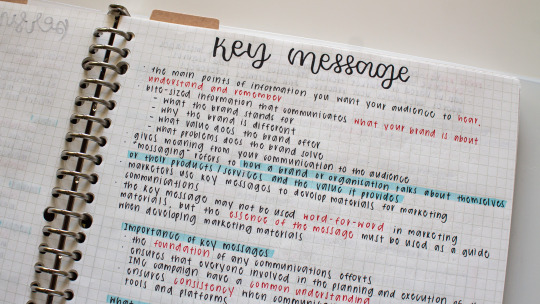 Key Message
· the main points of information you want your audience to hear,
understand and remember
· bite-sized information that communicates what your brand is about
- what the brand stands for
- why the brand is different
- what value does the brand offer
- what problems does the brand solve
· gives meaning from your communication to the audience
· "messaging" refers to how a brand or organisation talks about themselves
or their products/services and the value it provides
· marketers use key messages to develop materials for marketing
communications
· the key message may not be used word-for-word in marketing
materials, but the essence of the message must be used as a guide
when developing marketing materials
Importance of key messages
· the foundation of any communications efforts
· ensures that everyone involved in the planning and execution of
IMC campaign have a common understanding
· ensures consistency when
tools and platforms
What